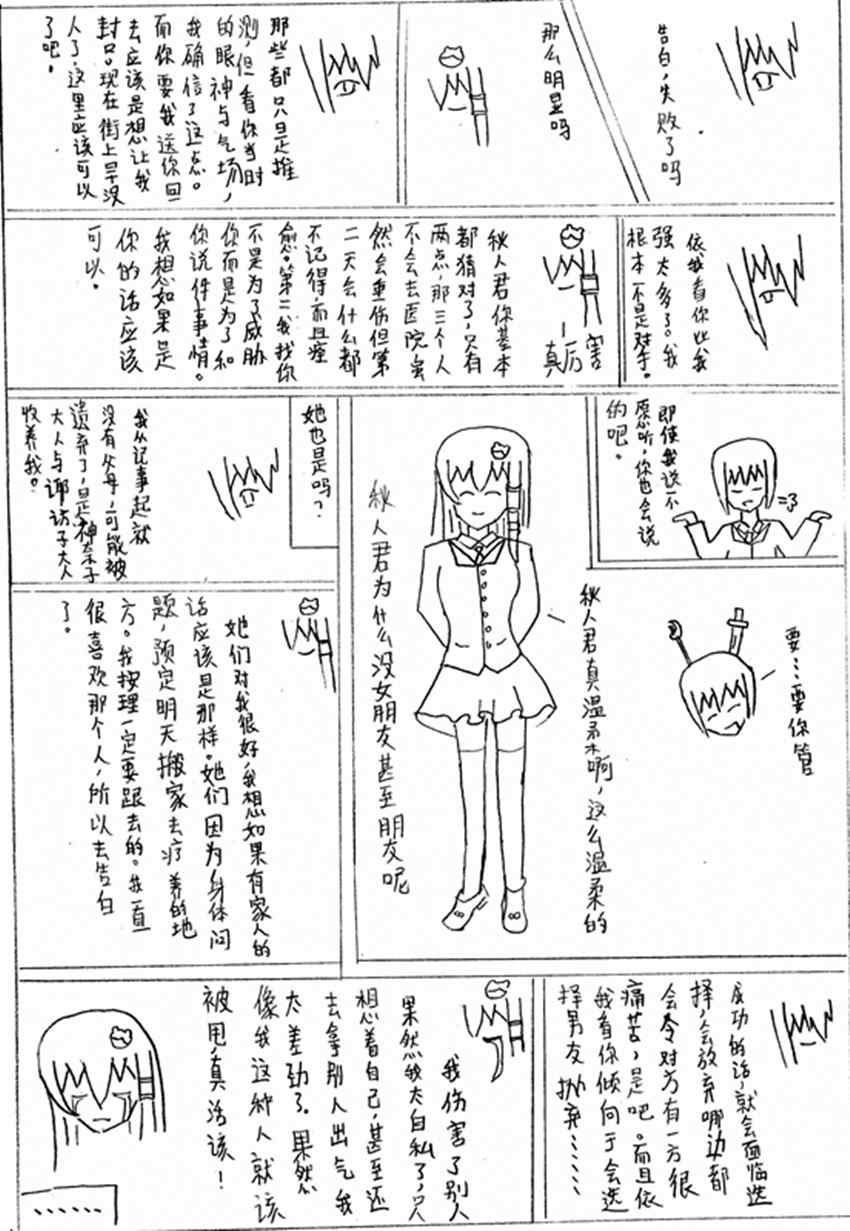 告白，失败了吗
那么明显吗
那些都只是推
测，但看你当时
的眼神与气场，
我确信了这点。
而你要我送你回
去应该是想让我
封口。现在街上早没
人了，这里应该可以
了吧。
依我看你比我
强太多了。我
根本不是对手。
真厉害
秋人君你基本
都猜对了，只有
两点，那三个人
不会去医院，虽
然会重伤但第
二天会什么都
不记得，而且痊
愈。第二我找你
不是为了威胁
你而是为了和
你说件事情。
我想如果是
你的话应该
可以。
即使我说不
愿听，你也会说
的吧。
秋人君真温柔啊，这么温柔的
秋人君为什么没女朋友甚至朋友呢
要……要你管
她也是吗？
我从记事起就
没有父母，可能被
遗弃了，是神奈子
大人与诹访子大人
收养我。
她们对我很好，我想如果有家人的
话应该是那样。她们因为身体问
题，预定明天搬家去疗养的地
方。我按理一定要跟去的。我一直
很喜欢那个人，所以去告白
了。
成功的话，就会面临选
择，会放弃哪边都
会令对方有一方很
痛苦，是吧。而且依
我看你倾向于会选
择男友抛弃……
我伤害了别人
果然我太自私了，只
想着自己，甚至还
去拿别人出气我
太差劲了。果然
像我这种人就该
被甩真活该！
……